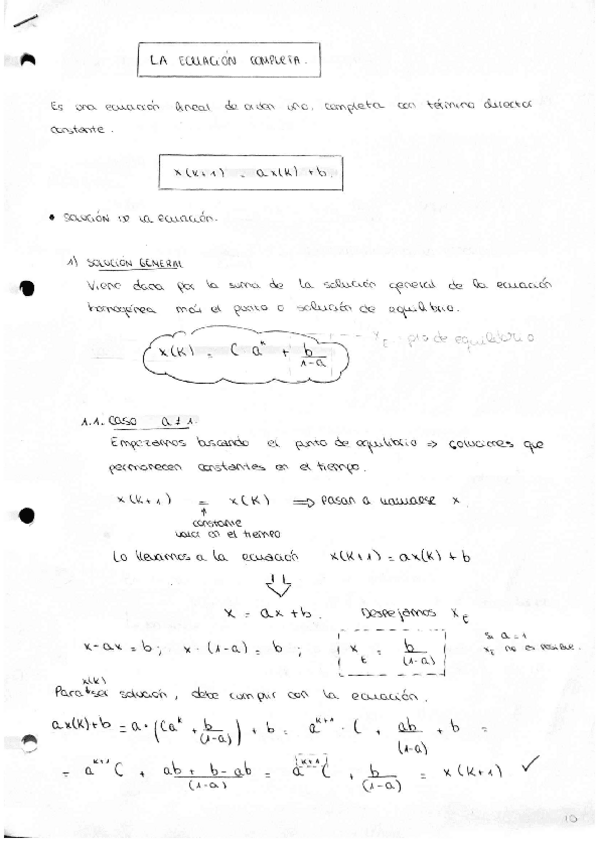 LA ECUACIÓN COMPLETA.
Es una ecuación lineal de orden uno, completa con término director
constante.
x(k+1) = ax(k) + b.
• SOLUCIÓN DE LA ECUACIÓN.
1) SOLUCIÓN GENERAL
Viene dada por la suma de la solución general de la ecuación
homogénea más el punto o solución de equilibrio.
x(k) = C aᵏ + b/(1-a) --- x_t: pto de equilibrio
1.1. Caso a ≠ 1.
Empezamos buscando el punto de equilibrio ⇒ soluciones que
permanecen constantes en el tiempo.
x(k+1) = x(k) ⇒ pasan a llamarse x
↑
constante
valor en el tiempo
Lo llevamos a la ecuación x(k+1) = ax(k) + b
⇓
x = ax + b. Despejamos x_t
x - ax = b ; x · (1-a) = b ; x_t = b/(1-a) si a = 1 x_t no es posible.
Para x(k) ser solución, debe cumplir con la ecuación.
ax(k)+b = a · (Caᵏ + b/(1-a)) + b = aᵏ⁺¹ · C + ab/(1-a) + b =
= aᵏ⁺¹ C + (ab + b - ab)/(1-a) = aᵏ⁺¹ C + b/(1-a) = x(k+1) ✓
10